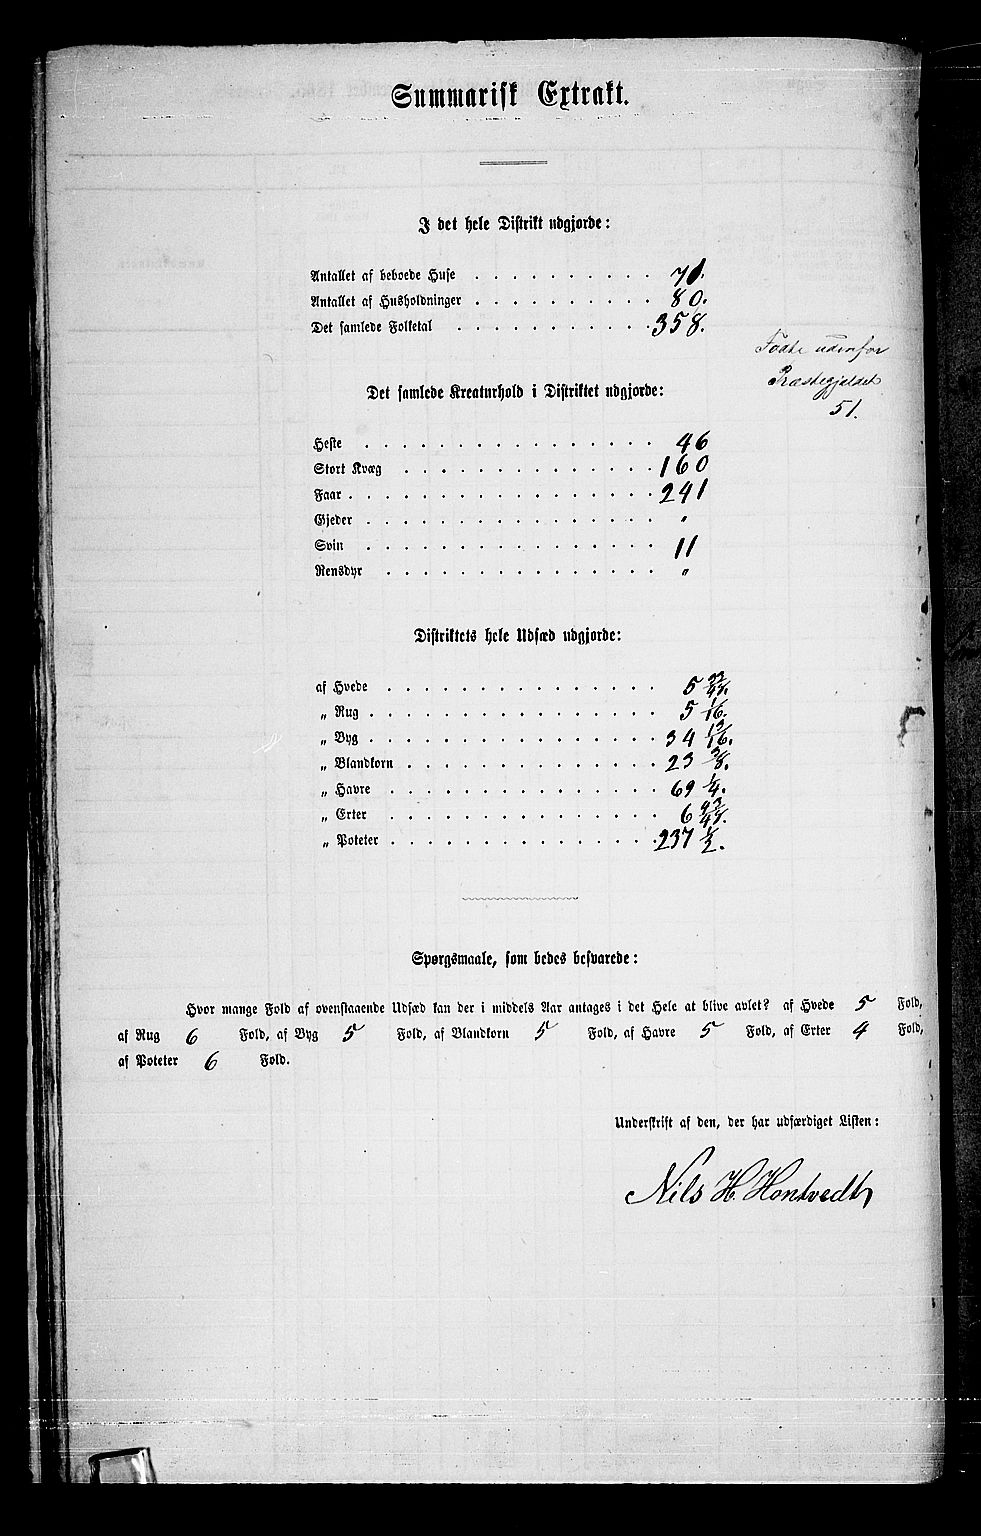 Summarisk Extrakt.
I det hele Distrikt udgjorde:
Antallet af beboede Huse . . . . . . . . . . 71.
Antallet af Husholdninger . . . . . . . . . . 80.
Det samlede Folketal . . . . . . . . . . . 358.
Fødte udenfor
Præstegjeldet
51.
Det samlede Kreaturhold i Distriktet udgjorde:
Heste . . . . . . . . . . . . . . . . 46
Stort Kvæg . . . . . . . . . . . . . . 160
Faar . . . . . . . . . . . . . . . . . 241
Gjeder . . . . . . . . . . . . . . . . "
Svin . . . . . . . . . . . . . . . . 11
Rensdyr . . . . . . . . . . . . . . . "
Distriktets hele Udsæd udgjorde:
af Hvede . . . . . . . . . . . . . . . 5
„ Rug . . . . . . . . . . . . . . . . 5 1/16.
„ Byg . . . . . . . . . . . . . . . . 34 13/16.
„ Blandkorn . . . . . . . . . . . . . . 23 3/8.
„ Havre . . . . . . . . . . . . . . . 69 1/4.
„ Erter . . . . . . . . . . . . . . . 6
„ Poteter . . . . . . . . . . . . . . . 237 1/2.
Spørgsmaale, som bedes besvarede:
Hvor mange Fold af ovenstaaende Udsæd kan der i middels Aar antages i det Hele at blive avlet? af Hvede 5 Fold,
af Rug 6 Fold, af Byg 5 Fold, af Blandkorn 5 Fold, af Havre 5 Fold, af Erter 4 Fold,
af Poteter 6 Fold.
Underskrift af den, der har udfærdiget Listen:
Nils H. Hontvedt